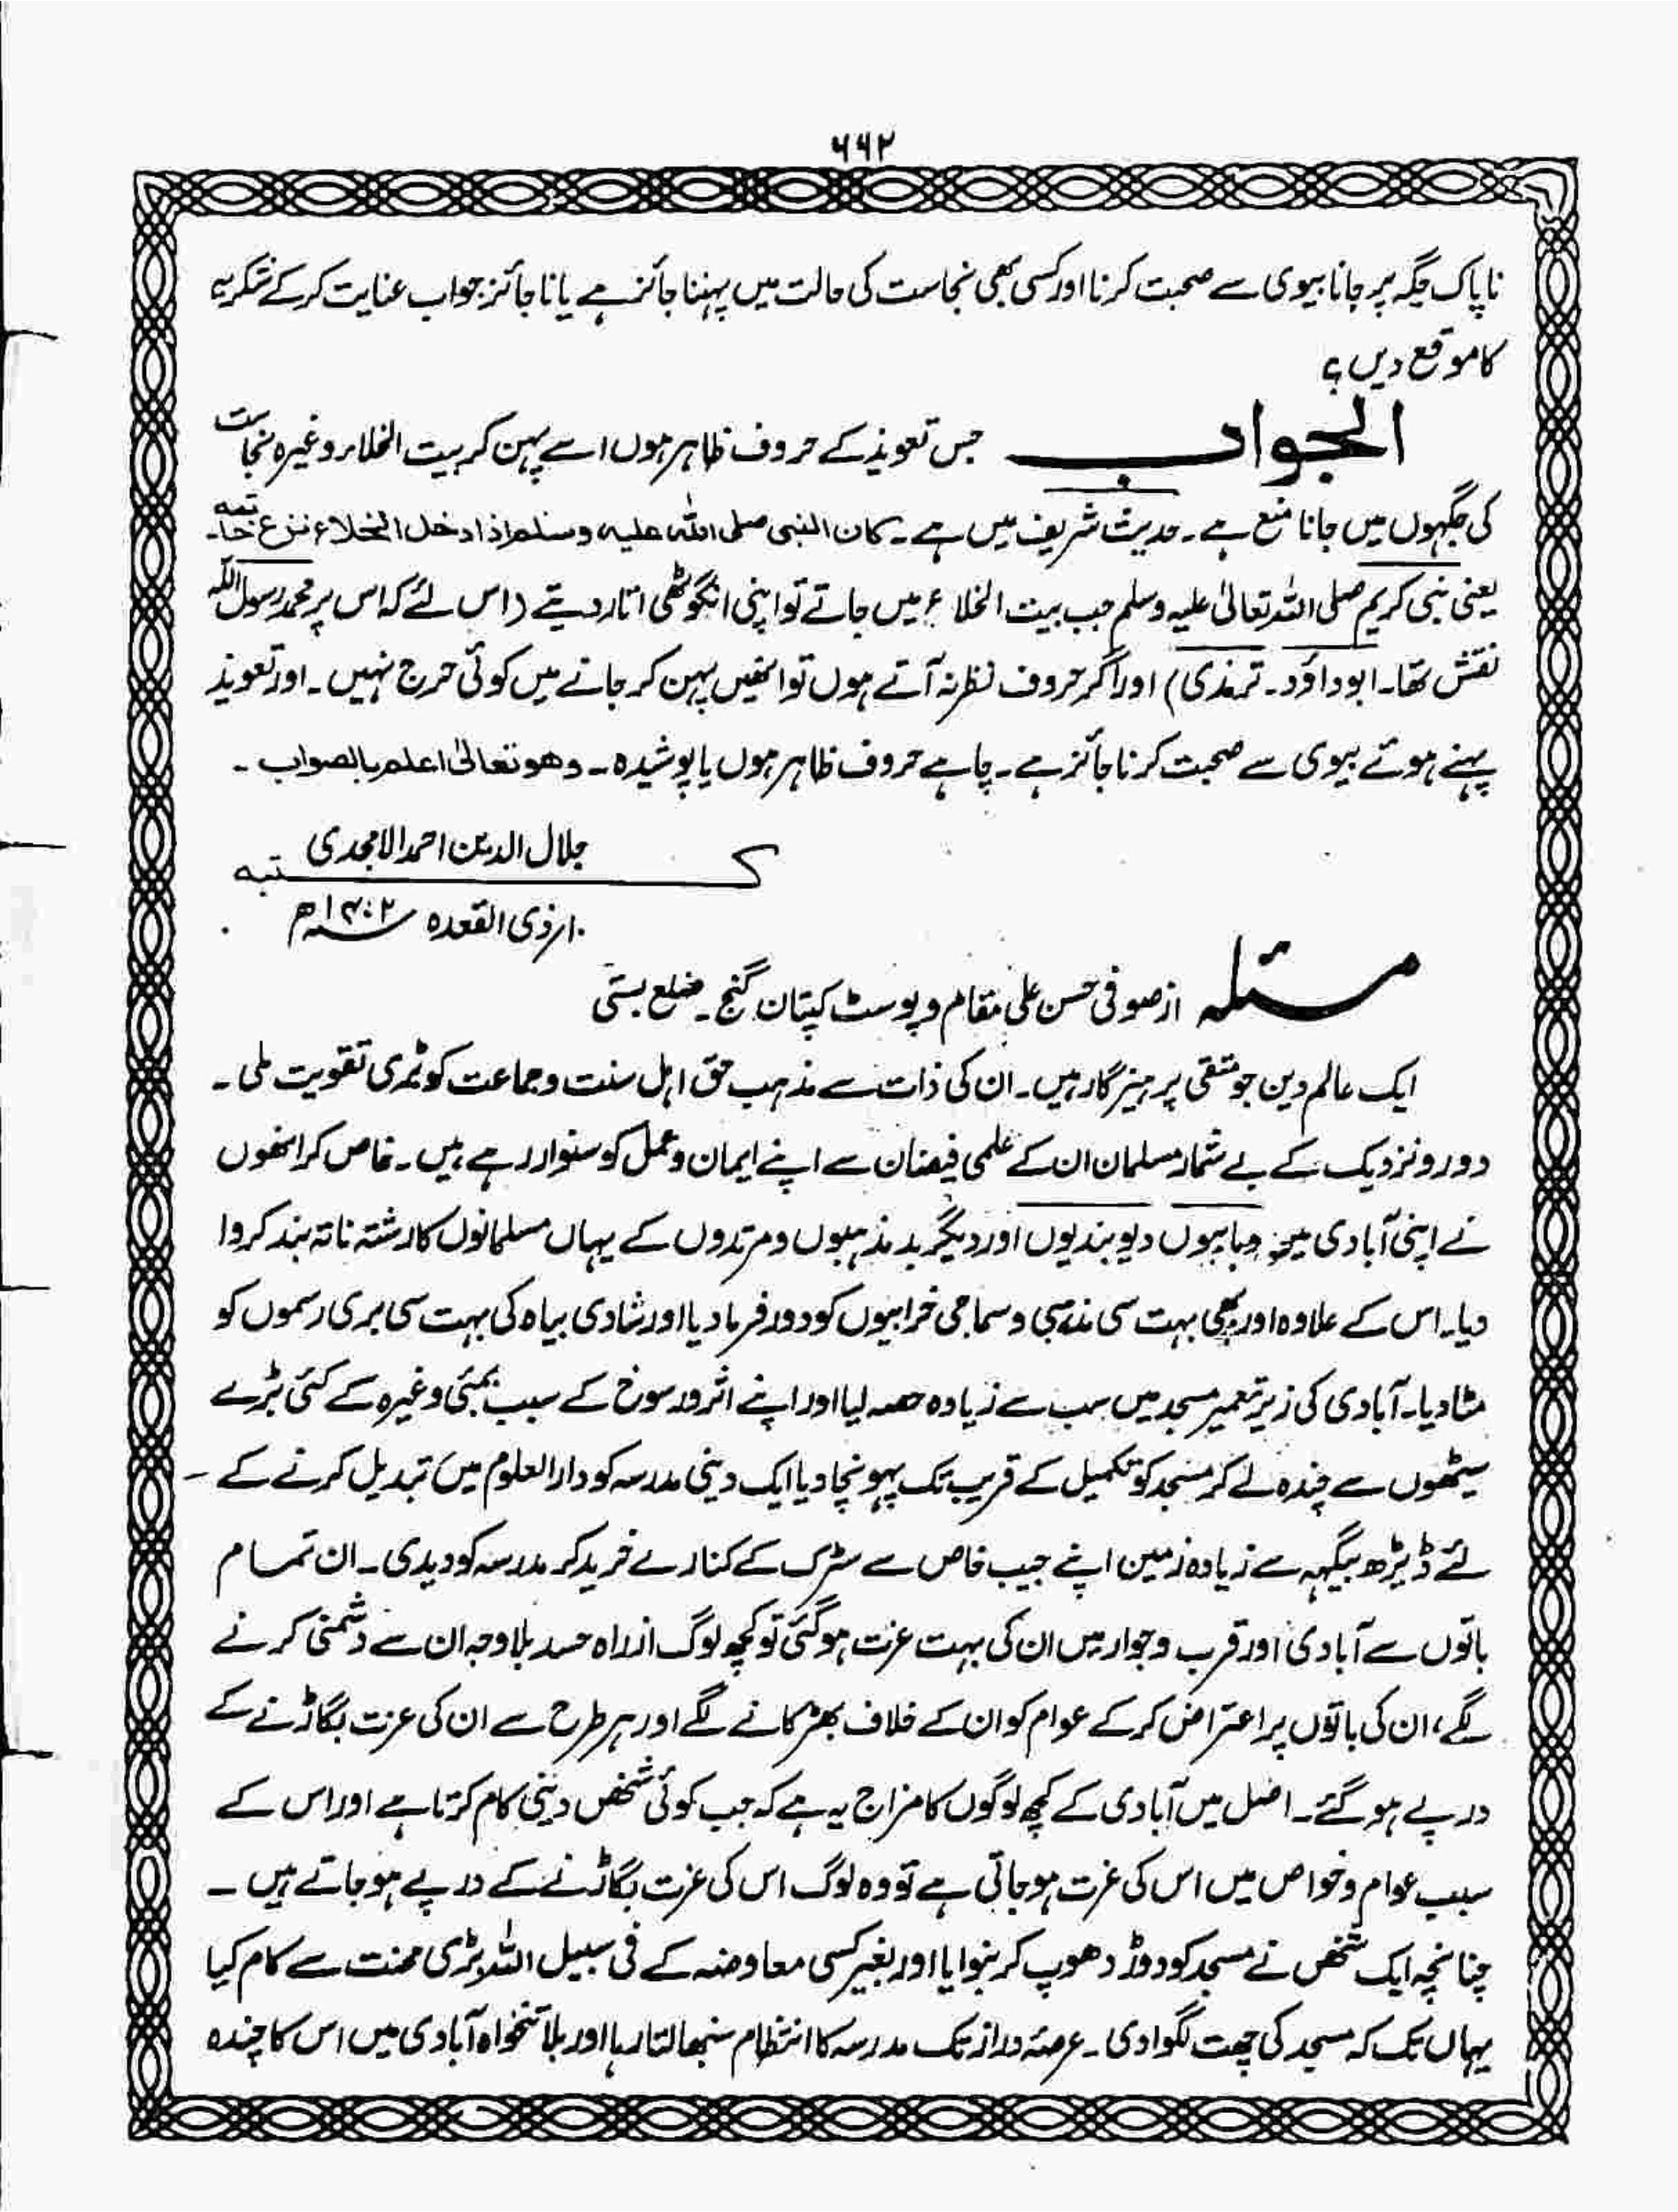 ۶۶۲
ناپاک جگہ پر جانا بیوی سے صحبت کرنا اور کسی بھی نجاست کی حالت میں پہننا جائز ہے یا ناجائز جواب عنایت کر کے شکریہ
کا موقع دیں؟
الجواب جس تعویذ کے حروف ظاہر ہوں اسے پہن کر بیت الخلاء وغیرہ نجاست
کی جگہوں میں جانا منع ہے۔ حدیث شریف میں ہے۔ کان النبی صلی اللہ علیہ وسلم اذا دخل الخلاء نزع خاتمہ
یعنی نبی کریم صلی اللہ تعالیٰ علیہ وسلم جب بیت الخلاء میں جاتے تو اپنی انگوٹھی اتار دیتے (اس لئے کہ اس پر محمد رسول اللہ
نقش تھا۔ ابوداؤد۔ ترمذی) اور اگر حروف نظر نہ آتے ہوں تو انھیں پہن کر جانے میں کوئی حرج نہیں۔ اور تعویذ
پہنے ہوئے بیوی سے صحبت کرنا جائز ہے۔ چاہے حروف ظاہر ہوں یا پوشیدہ۔ وھو تعالیٰ اعلم بالصواب۔
جلال الدین احمد الامجدی
کتبہ
۱۰؍ ذی القعدہ ۱۴۰۲ھ
مسئلہ از صوفی حسن علی مقام و پوسٹ کپتان گنج۔ ضلع بستی
ایک عالم دین جو متقی پرہیزگار ہیں۔ ان کی ذات سے مذہب حق اہل سنت وجماعت کو بڑی تقویت ملی۔
دور ونزدیک کے بے شمار مسلمان ان کے علمی فیضان سے اپنے ایمان وعمل کو سنوار رہے ہیں۔ خاص کر انھوں
نے اپنی آبادی میں وہابیوں دیوبندیوں اور دیگر بد مذہبوں ومرتدوں کے یہاں مسلمانوں کا رشتہ ناتہ بند کروا
دیا۔ اس کے علاوہ اور بھی بہت سی مذہبی وسماجی خرابیوں کو دور فرما دیا اور شادی بیاہ کی بہت سی بری رسموں کو
مٹا دیا۔ آبادی کی زیر تعمیر مسجد میں سب سے زیادہ حصہ لیا اور اپنے اثر ورسوخ کے سبب بمبئی وغیرہ کے کئی بڑے
سیٹھوں سے چندہ لے کر مسجد کو تکمیل کے قریب تک پہونچا دیا ایک دینی مدرسہ کو دارالعلوم میں تبدیل کرنے کے
لئے ڈیڑھ بیگہہ سے زیادہ زمین اپنے جیب خاص سے سڑک کے کنارے خرید کر مدرسہ کو دیدی۔ ان تمام
باتوں سے آبادی اور قرب وجوار میں ان کی بہت عزت ہوگئی تو کچھ لوگ از راہ حسد بلا وجہ ان سے دشمنی کرنے
لگے، ان کی باتوں پر اعتراض کر کے عوام کو ان کے خلاف بھڑکانے لگے اور ہر طرح سے ان کی عزت بگاڑنے کے
درپے ہوگئے۔ اصل میں آبادی کے کچھ لوگوں کا مزاج یہ ہے کہ جب کوئی شخص دینی کام کرتا ہے اور اس کے
سبب عوام وخواص میں اس کی عزت ہوجاتی ہے تو وہ لوگ اس کی عزت بگاڑنے کے درپے ہوجاتے ہیں۔
چنانچہ ایک شخص نے مسجد کو دوڑ دھوپ کر بنوایا اور بغیر کسی معاوضہ کے فی سبیل اللہ بڑی محنت سے کام کیا
یہاں تک کہ مسجد کی چھت لگوا دی۔ عرصۂ دراز تک مدرسہ کا انتظام سنبھالتا رہا اور بلا تنخواہ آبادی میں اس کا چندہ